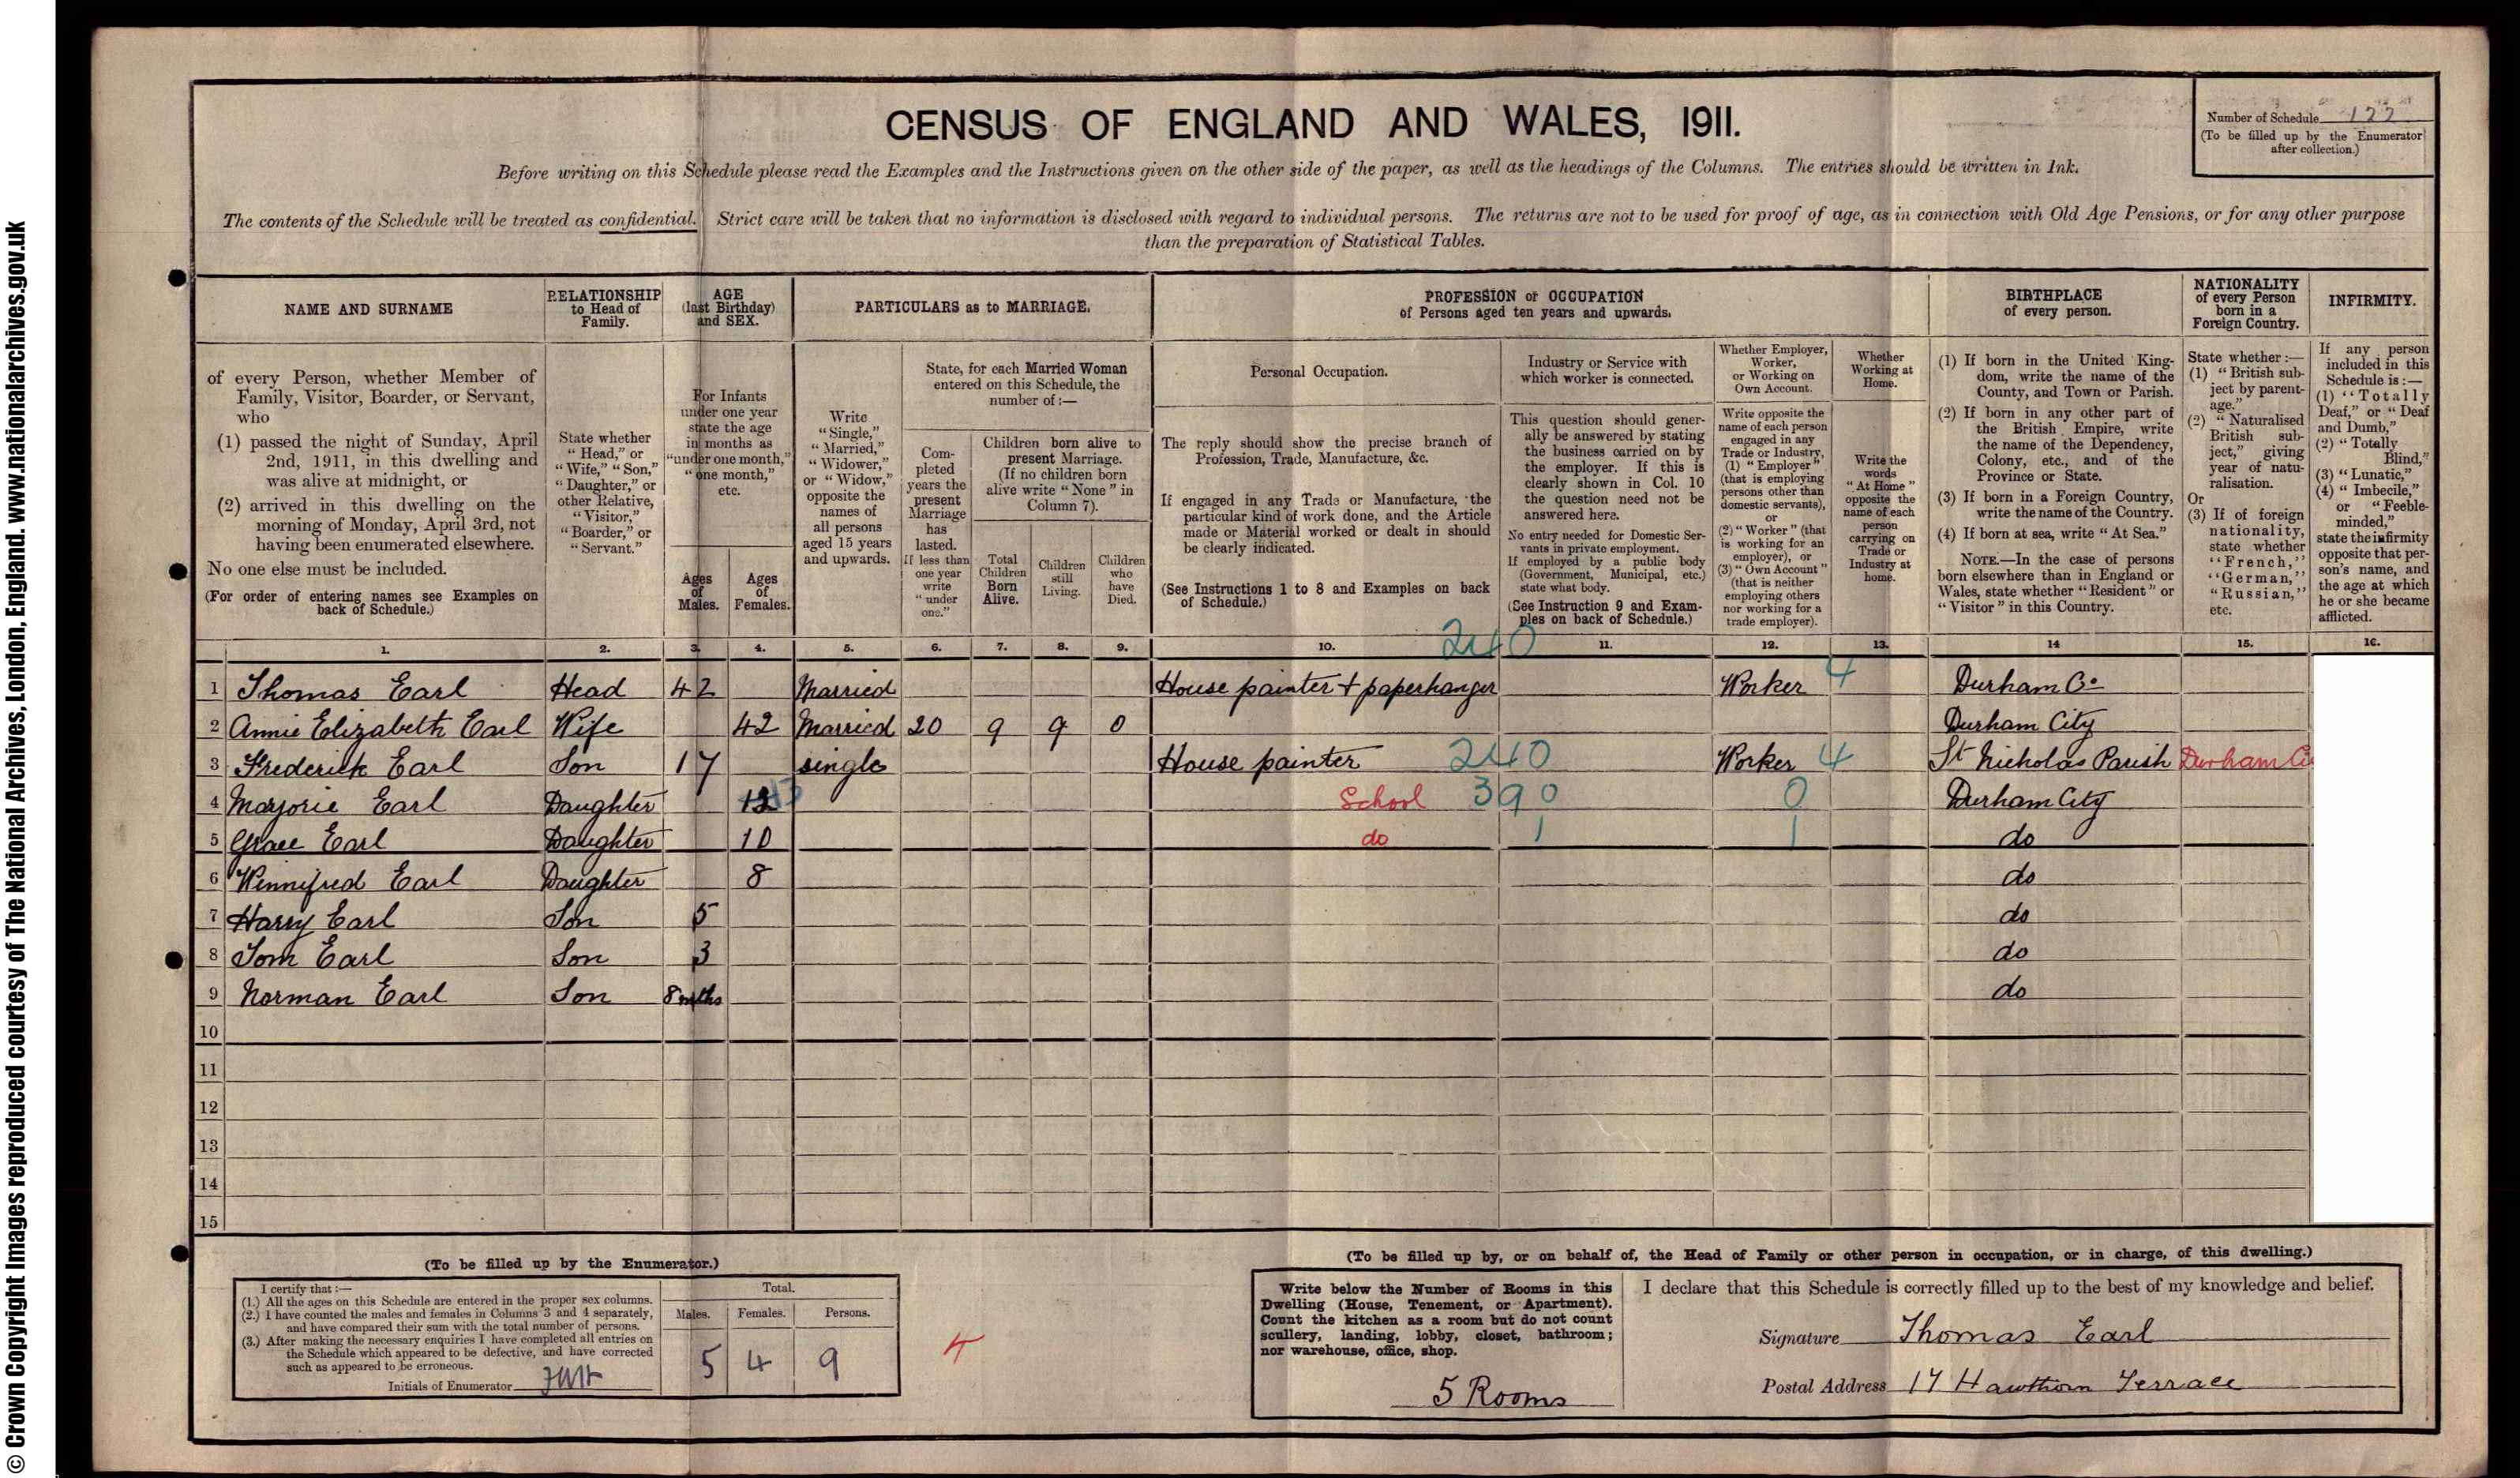 © Crown Copyright Images reproduced courtesy of The National Archives, London, England. www.nationalarchives.gov.uk
CENSUS OF ENGLAND AND WALES, 1911.
Number of Schedule 122
(To be filled up by the Enumerator after collection.)
Before writing on this Schedule please read the Examples and the Instructions given on the other side of the paper, as well as the headings of the Columns. The entries should be written in Ink.
The contents of the Schedule will be treated as confidential. Strict care will be taken that no information is disclosed with regard to individual persons. The returns are not to be used for proof of age, as in connection with Old Age Pensions, or for any other purpose
than the preparation of Statistical Tables.
NAME AND SURNAME
RELATIONSHIP to Head of Family.
AGE (last Birthday) and SEX.
PARTICULARS as to MARRIAGE.
PROFESSION or OCCUPATION of Persons aged ten years and upwards.
BIRTHPLACE of every person.
NATIONALITY of every Person born in a Foreign Country.
INFIRMITY.
of every Person, whether Member of Family, Visitor, Boarder, or Servant, who
(1) passed the night of Sunday, April 2nd, 1911, in this dwelling and was alive at midnight, or
(2) arrived in this dwelling on the morning of Monday, April 3rd, not having been enumerated elsewhere.
No one else must be included.
(For order of entering names see Examples on back of Schedule.)
State whether "Head," or "Wife," "Son," "Daughter," or other Relative, "Visitor," "Boarder," or "Servant."
For Infants under one year state the age in months as "under one month," "one month," etc.
Ages of Males.
Ages of Females.
Write "Single," "Married," "Widower," or "Widow," opposite the names of all persons aged 15 years and upwards.
State, for each Married Woman entered on this Schedule, the number of:—
Completed years the present Marriage has lasted. If less than one year write "under one."
Children born alive to present Marriage. (If no children born alive write "None" in Column 7).
Total Children Born Alive.
Children still Living.
Children who have Died.
Personal Occupation.
The reply should show the precise branch of Profession, Trade, Manufacture, &c.
If engaged in any Trade or Manufacture, the particular kind of work done, and the Article made or Material worked or dealt in should be clearly indicated.
(See Instructions 1 to 8 and Examples on back of Schedule.)
Industry or Service with which worker is connected.
This question should generally be answered by stating the business carried on by the employer. If this is clearly shown in Col. 10 the question need not be answered here.
No entry needed for Domestic Servants in private employment. If employed by a public body (Government, Municipal, etc.) state what body.
(See Instruction 9 and Examples on back of Schedule.)
Whether Employer, Worker, or Working on Own Account.
Write opposite the name of each person engaged in any Trade or Industry, (1) "Employer" (that is employing persons other than domestic servants), or (2) "Worker" (that is working for an employer), or (3) "Own Account" (that is neither employing others nor working for a trade employer).
Whether Working at Home.
Write the words "At Home" opposite the name of each person carrying on Trade or Industry at home.
(1) If born in the United Kingdom, write the name of the County, and Town or Parish.
(2) If born in any other part of the British Empire, write the name of the Dependency, Colony, etc., and of the Province or State.
(3) If born in a Foreign Country, write the name of the Country.
(4) If born at sea, write "At Sea."
NOTE.—In the case of persons born elsewhere than in England or Wales, state whether "Resident" or "Visitor" in this Country.
State whether:—
(1) "British subject by parentage."
(2) "Naturalised British subject," giving year of naturalisation.
Or
(3) If of foreign nationality, state whether "French," "German," "Russian," etc.
If any person included in this Schedule is:—
(1) "Totally Deaf," or "Deaf and Dumb,"
(2) "Totally Blind,"
(3) "Lunatic,"
(4) "Imbecile," or "Feeble-minded,"
state the infirmity opposite that person's name, and the age at which he or she became afflicted.
1. 2. 3. 4. 5. 6. 7. 8. 9. 10. 240 11. 12. 13. 14 15. 16.
1 Thomas Earl Head 42 Married House painter + paperhanger Worker 4 Durham Co
2 Annie Elizabeth Earl Wife 42 Married 20 9 9 0 Durham City
3 Frederick Earl Son 17 single House painter 240 Worker 4 St Nicholas Parish Durham Ci
4 Marjorie Earl Daughter School 390 0 Durham City
5 Grace Earl Daughter 10 do 1 1 do
6 Winnifred Earl Daughter 8 do
7 Harry Earl Son 5 do
8 Tom Earl Son 3 do
9 Norman Earl Son 8 mths do
10
11
12
13
14
15
(To be filled up by the Enumerator.)
I certify that:—
(1.) All the ages on this Schedule are entered in the proper sex columns.
(2.) I have counted the males and females in Columns 3 and 4 separately, and have compared their sum with the total number of persons.
(3.) After making the necessary enquiries I have completed all entries on the Schedule which appeared to be defective, and have corrected such as appeared to be erroneous.
Initials of Enumerator
Total.
Males. Females. Persons.
5 4 9
4
(To be filled up by, or on behalf of, the Head of Family or other person in occupation, or in charge, of this dwelling.)
Write below the Number of Rooms in this Dwelling (House, Tenement, or Apartment). Count the kitchen as a room but do not count scullery, landing, lobby, closet, bathroom; nor warehouse, office, shop.
5 Rooms
I declare that this Schedule is correctly filled up to the best of my knowledge and belief.
Signature Thomas Earl
Postal Address 17 Hawthorn Terrace